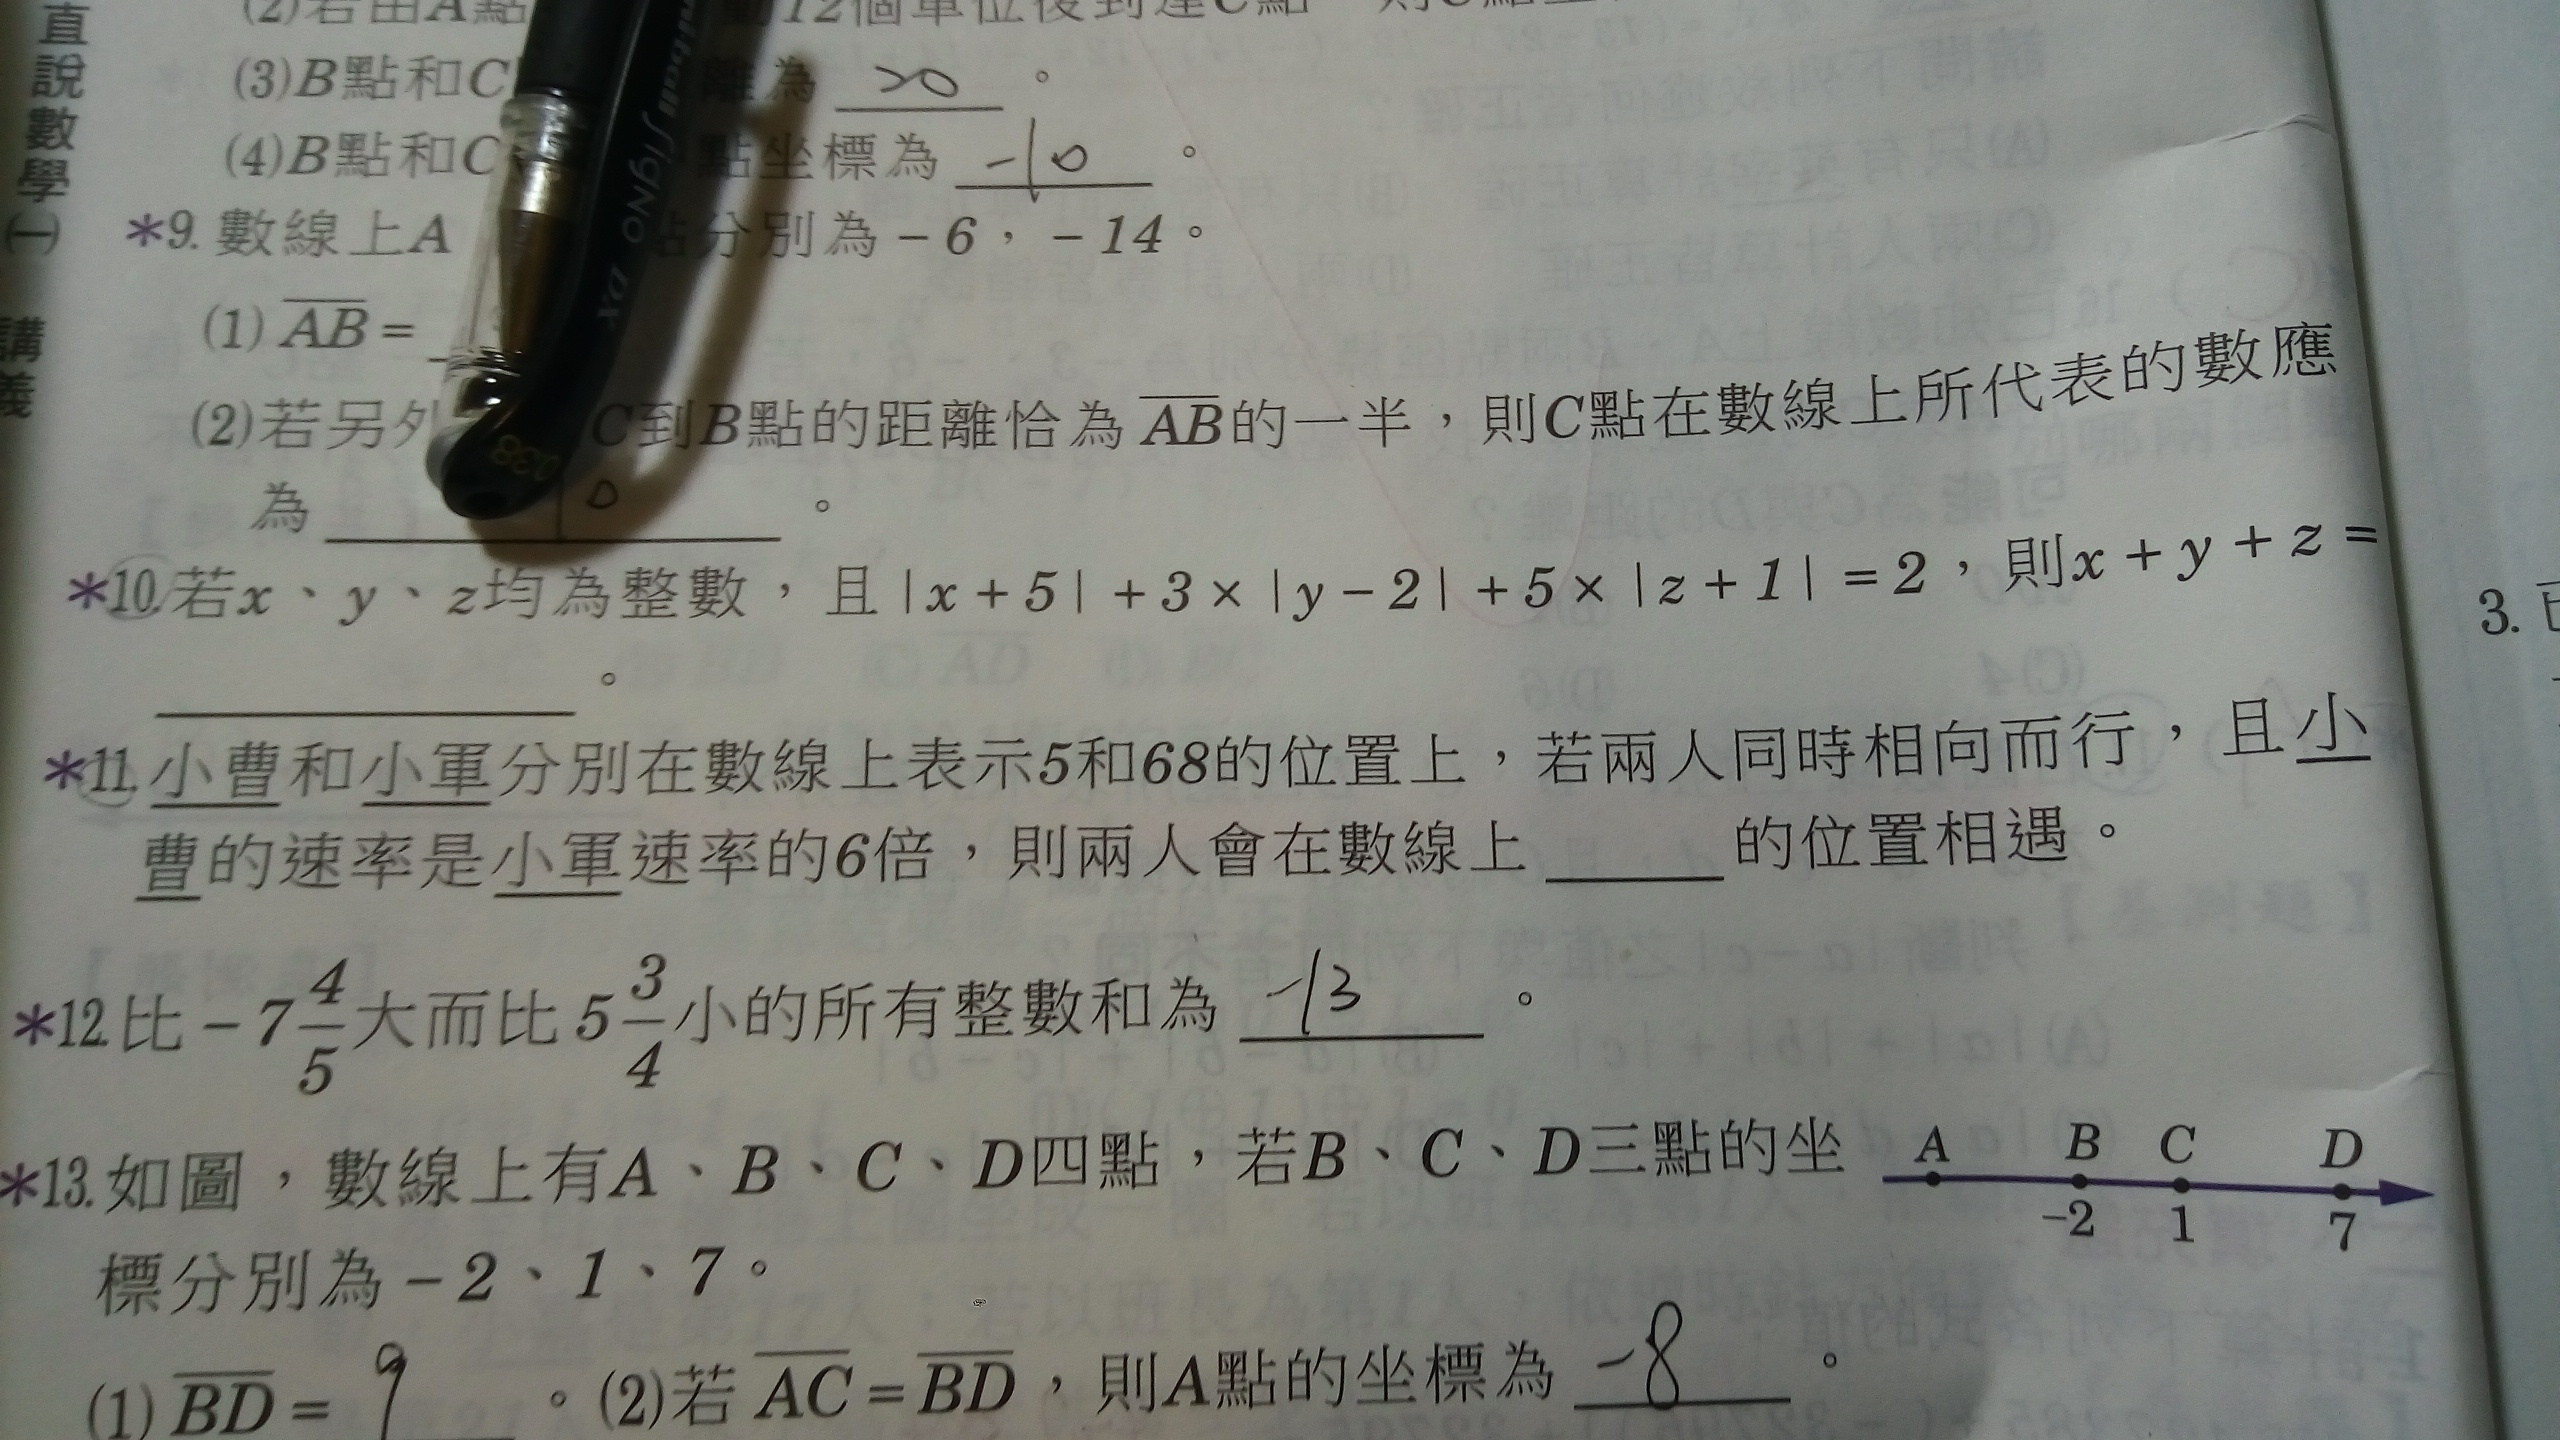 直說數學(一) 講義
(2)若由A點 12個單位後到達C點
(3)B點和C 離為 20 。
(4)B點和C 點坐標為 -10 。
*9. 數線上A 點分別為-6,-14。
(1) AB =
(2)若另外 C到B點的距離恰為AB的一半,則C點在數線上所代表的數應
為 10 。
*10. 若x、y、z均為整數,且|x+5|+3×|y-2|+5×|z+1|=2,則x+y+z=
。
*11. 小曹和小軍分別在數線上表示5和68的位置上,若兩人同時相向而行,且小
曹的速率是小軍速率的6倍,則兩人會在數線上 的位置相遇。
*12. 比-7 4/5 大而比 5 3/4 小的所有整數和為 -13 。
*13. 如圖,數線上有A、B、C、D四點,若B、C、D三點的坐
A B C D
-2 1 7
標分別為-2、1、7。
(1) BD = 9 。(2)若 AC = BD,則A點的坐標為 -8 。
uni-ball SigNo DX
0.38
3.